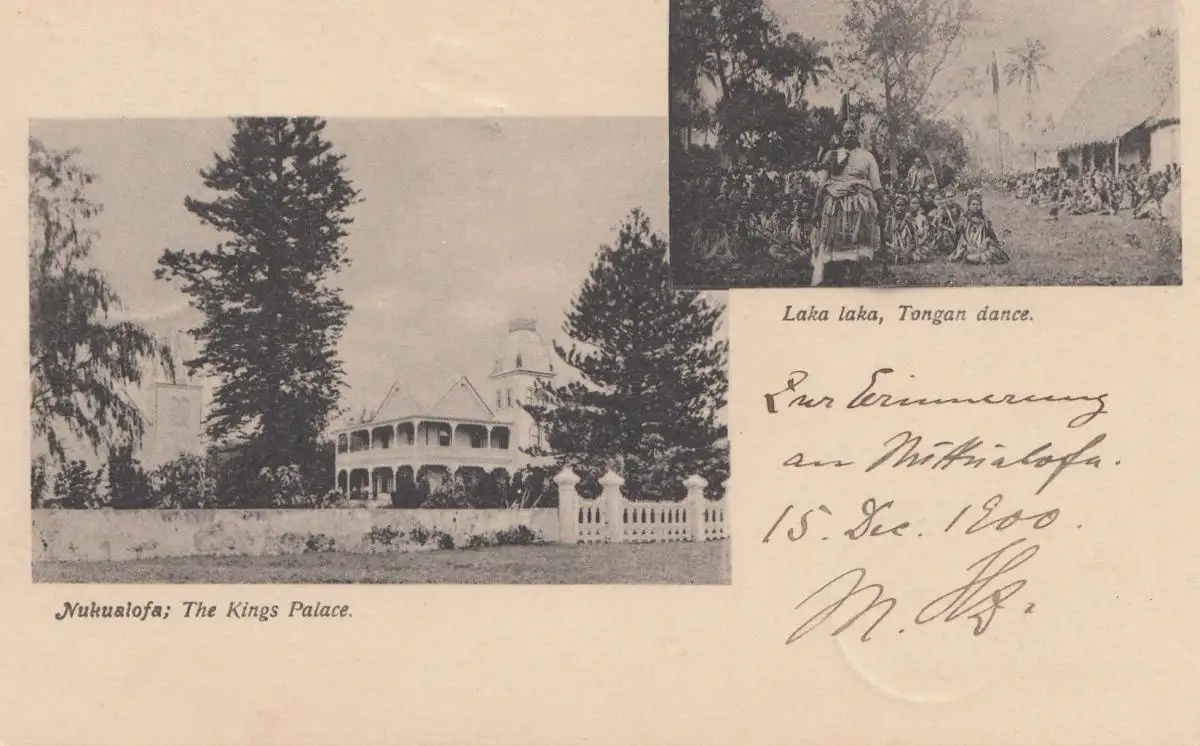 Laka laka, Tongan dance.
Zur Erinnerung
an Nukualofa.
15. Dec. 1900.
M.
Nukualofa; The Kings Palace.